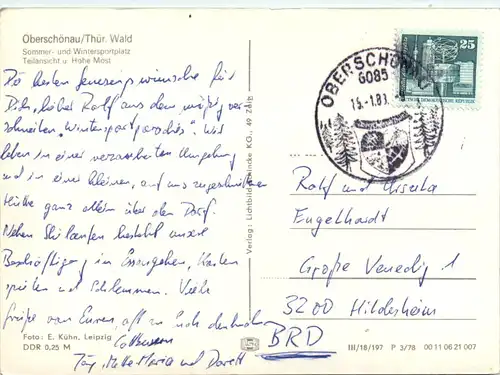 Oberschönau/Thür. Wald
Sommer- und Wintersportplatz
Teilansicht u. Hohe Möst
Die besten Genesungswünsche für
Dich, lieber Rolf aus dem mäßig ver-
schneiten "Wintersportparadies". Wir
leben in einer verzauberten Umgebung
und in einer kleinen, auf uns zugeschnittenen
Hütte ganz allein über dem Dorf.
Neben Skilaufen besteht unsere
Beschäftigung in Essengehen, Karten
spielen und Schlemmen. Viele
Grüße von Euren, oft an Euch denkenden
Cottbusern
Maria und Dorett
Foto: E. Kühn, Leipzig
DDR 0,25 M
Verlag: Lichtbild KG., 49 Zeitz
OBERSCHÖNAU
6085
15.-1.83
25
DEUTSCHE DEMOKRATISCHE REPUBLIK
Rolf und Ursula
Engelhardt
Große Venedig 1
3200 Hildesheim
BRD
III/18/197 P 3/78 00 11 06 21 007